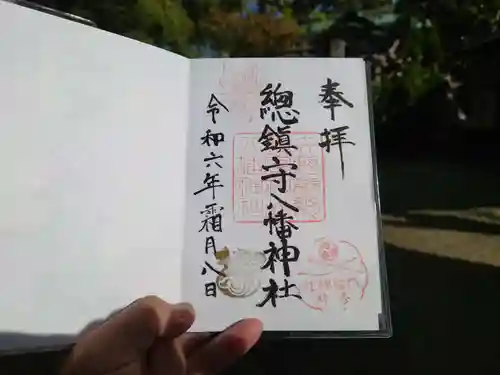 奉拝
總鎮守八幡神社
令和六年霜月八日